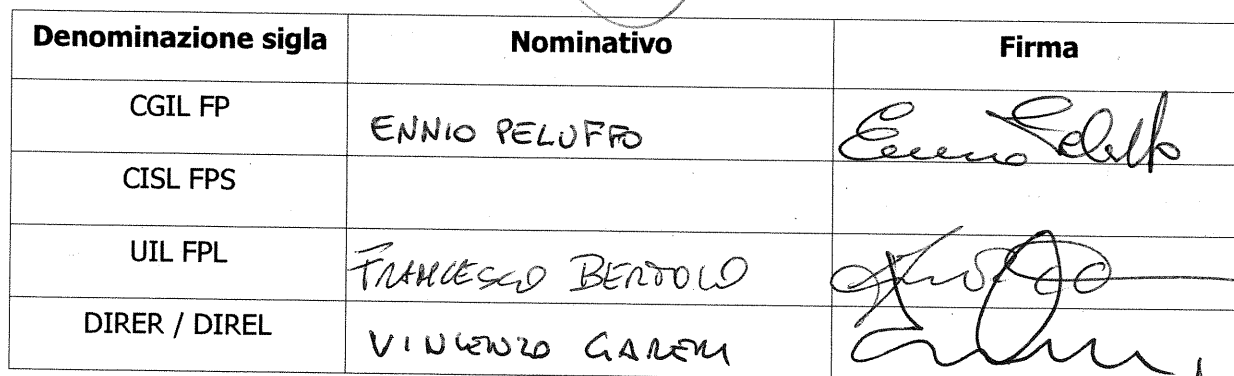 Denominazione sigla Nominativo Firma
CGIL FP ENNIO PELUFFO
CISL FPS
UIL FPL FRANCESCO BERTOLO
DIRER / DIREL VINCENZO